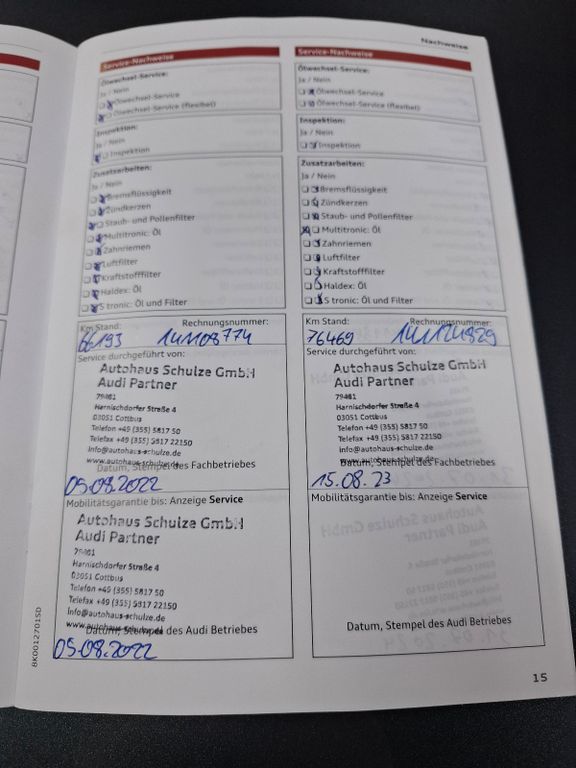 Nachweise
Service-Nachweise
Ölwechsel-Service:
Ja / Nein
Ölwechsel-Service
Ölwechsel-Service (flexibel)
Inspektion:
Ja / Nein
Inspektion
Zusatzarbeiten:
Ja / Nein
Bremsflüssigkeit
Zündkerzen
Staub- und Pollenfilter
Multitronic: Öl
Zahnriemen
Luftfilter
Kraftstofffilter
Haldex: Öl
S tronic: Öl und Filter
Km Stand: Rechnungsnummer:
66193 141108774
Service durchgeführt von:
Autohaus Schulze GmbH
Audi Partner
79461
Harnischdorfer Straße 4
03051 Cottbus
Telefon +49 (355) 5817 50
Telefax +49 (355) 5817 22150
info@autohaus-schulze.de
www.autohaus-schulze.de
Datum, Stempel des Fachbetriebes
05.08.2022
Mobilitätsgarantie bis: Anzeige Service
Autohaus Schulze GmbH
Audi Partner
79461
Harnischdorfer Straße 4
03051 Cottbus
Telefon +49 (355) 5817 50
Telefax +49 (355) 5817 22150
info@autohaus-schulze.de
www.autohaus-schulze.de
Datum, Stempel des Audi Betriebes
05.08.2022
Service-Nachweise
Ölwechsel-Service:
Ja / Nein
Ölwechsel-Service
Ölwechsel-Service (flexibel)
Inspektion:
Ja / Nein
Inspektion
Zusatzarbeiten:
Ja / Nein
Bremsflüssigkeit
Zündkerzen
Staub- und Pollenfilter
Multitronic: Öl
Zahnriemen
Luftfilter
Kraftstofffilter
Haldex: Öl
S tronic: Öl und Filter
Km Stand: Rechnungsnummer:
76469 141124829
Service durchgeführt von:
Autohaus Schulze GmbH
Audi Partner
79461
Harnischdorfer Straße 4
03051 Cottbus
Telefon +49 (355) 5817 50
Telefax +49 (355) 5817 22150
info@autohaus-schulze.de
www.autohaus-schulze.de
Datum, Stempel des Fachbetriebes
15.08.23
Mobilitätsgarantie bis: Anzeige Service
Datum, Stempel des Audi Betriebes
8K0012701SD
15